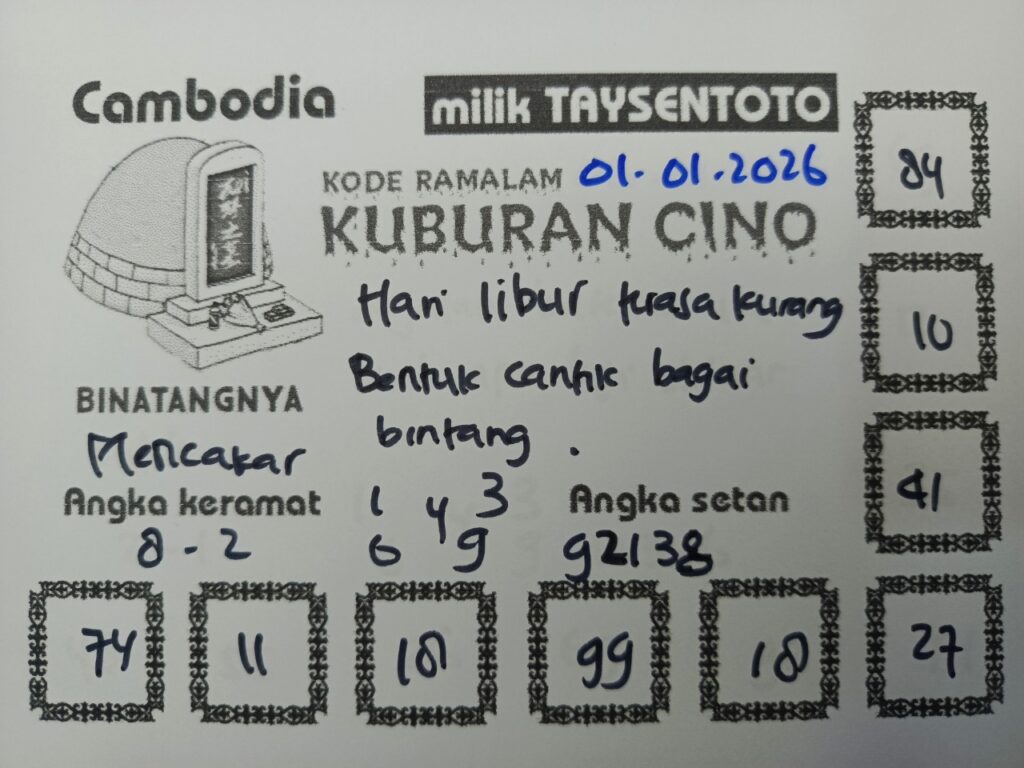 Cambodia
milik TAYSENTOTO
KODE RAMALAM 01.01.2026
KUBURAN CINO
Hari libur terasa kurang
Bentuk cantik bagai
bintang.
BINATANGNYA
Mencakar
Angka keramat
8-2
1 3
4
6 9
Angka setan
92138
84
10
41
27
74 11 18 99 18